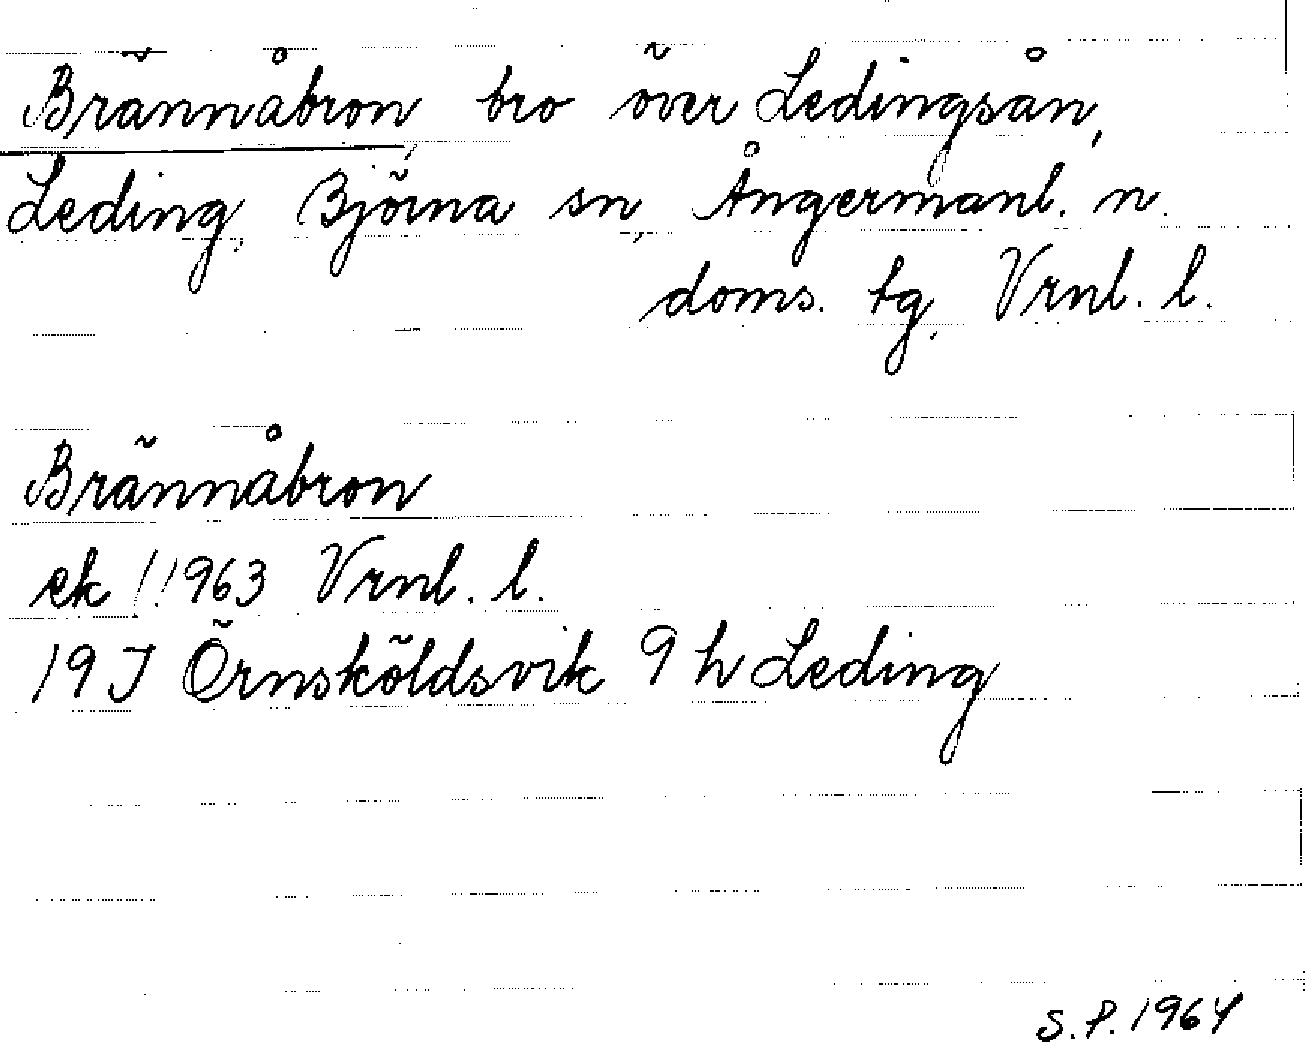 Brännåbron, bro över Ledingsån,
Leding, Björna sn, Ångermanl. n.
doms. tg, Vrnl. l.
Brännåbron
ek 1/1 1963 Vrnl. l.
19 J Örnsköldsvik 9 h Leding
S.P. 1964